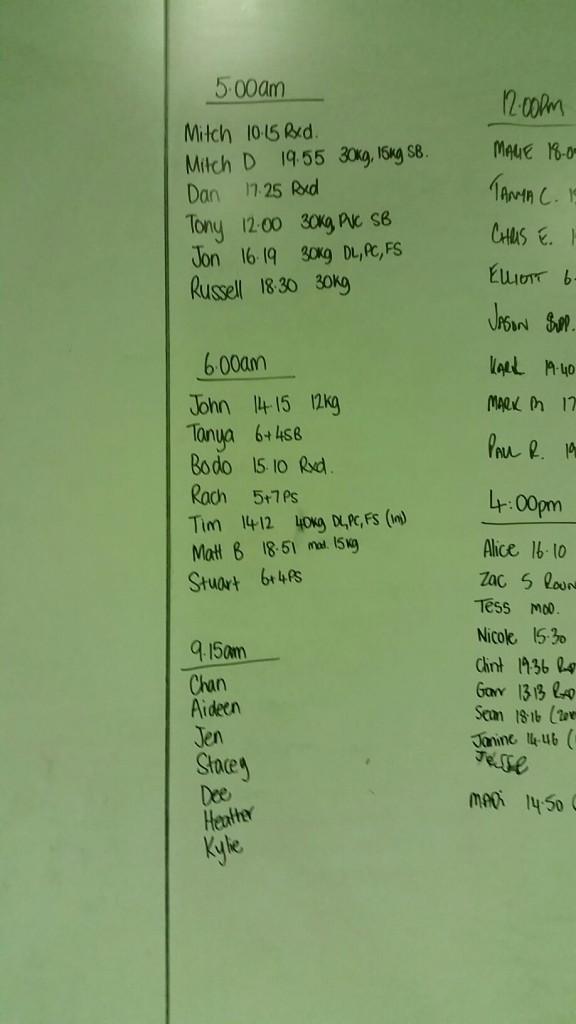 5.00am
Mitch 10.15 Rxd.
Mitch D 19.55 30kg, 15kg SB.
Dan 17.25 Rxd
Tony 12.00 30kg, PVC SB
Jon 16.19 30kg DL, PC, FS
Russell 18.30 30kg
6.00am
John 14.15 12kg
Tanya 6+4SB
Bodo 15.10 Rxd.
Rach 5+7PS
Tim 14.12 40kg DL, PC, FS (1m)
Matt B 18.51 mod. 15kg
Stuart 6+4PS
9.15am
Chan
Aideen
Jen
Stacey
Dee
Heather
Kylie
12.00pm
MARIE 18.0
TANYA C. 1
CHRIS E. 1
ELLIOTT 6
JASON SUPP.
KARL 19.40
MARK M 17
PAUL R. 19
4:00pm
Alice 16.10
Zac 5 Roun
Tess MOD.
Nicole 15.30
Clint 19.36 Rxd
13.13 Rxd
Sean 18.16
Janine 14.46 (
Jesse
MADi 14.50 (